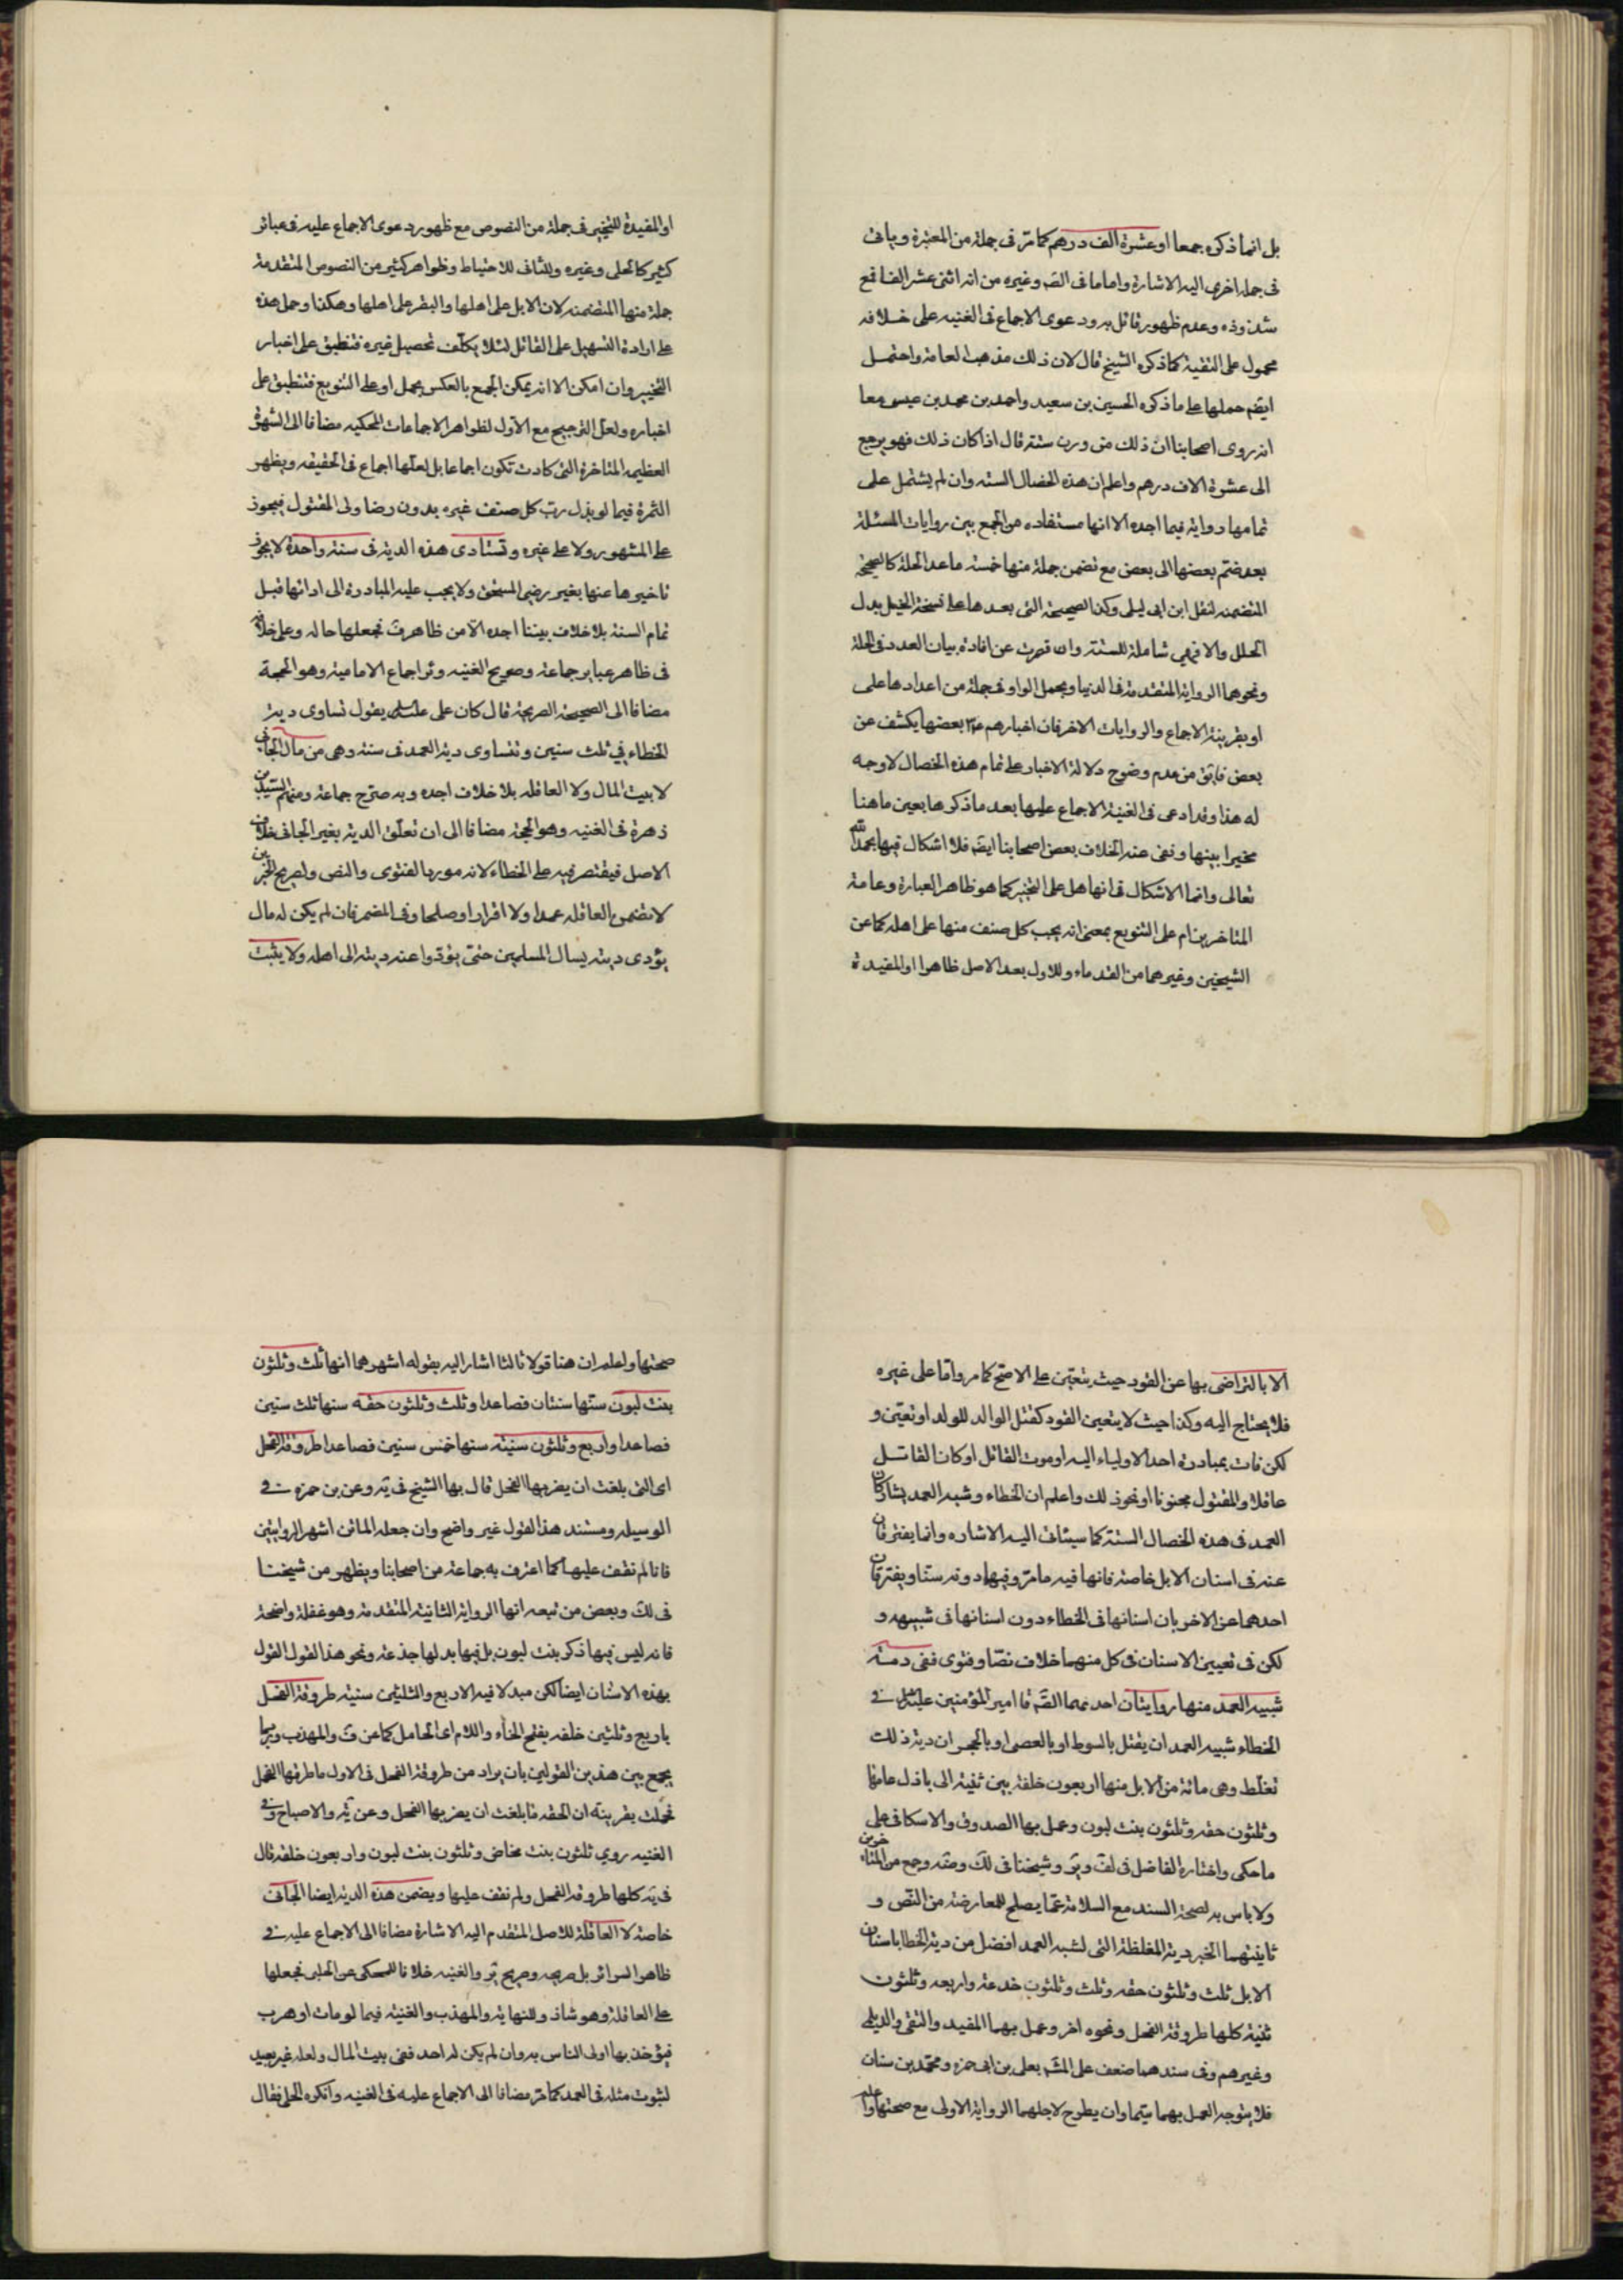 بل انما ذكره جمعا او عشرة الف درهم كما مر فى جملة من المعتبرة وياتى
فى جملة اخرى اليه الاشارة واما ما فى الصّ وغيره من انه اثنى عشر الفا فمع
شذوذه وعدم ظهور قائل به ودعوى الاجماع فى الغنيه على خلافه
محمول على التقية كما ذكره الشيخ قال لان ذلك مذهب العامة واحتمل
ايضم حملها على ما ذكره الحسين بن سعيد واحمد بن محمد بن عيسى معا
انه روى اصحابنا ان ذلك من ورن ستة قال اذا كان ذلك فهو يرجع
الى عشرة الاف درهم واعلم ان هذه الخصال الستة وان لم يشتمل على
تمامها رواية فيما اجده الا انها مستفاده من الجمع بين روايات المسئلة
بعد ضم بعضها الى بعض مع تضمن جملة منها خمسة ما عدا الحلة كالصحيحة
المتضمنه لنقل ابن ابى ليلى وكذا الصحيحة التى بعدها على نسخة الخيل بدل
الحلل والا فهى شاملة للستة وان قصرت عن افادة بيان العدد فى الحلة
ونحوهما الرواية المتقدمة فى الدنيا ويحمل الواو فى جملة من اعدادها على
او بقرينة الاجماع والروايات الاخر فان اخبارهم بعضها يكشف عن
بعض فايق من عدم وضوح دلالة الاخبار على تمام هذه الخصال لا وجه
له هذا وقد ادعى فى الغنية الاجماع عليها بعد ما ذكرها بعين ما هنا
مخيرا بينها ونفى عنه الخلاف بعض اصحابنا ايضم فلا اشكال فيها بحمد الله
تعالى وانما الاشكال فى انها هل على التخيير كما هو ظاهر العبارة وعامة
المتاخرين ام على التنويع بمعنى انه يجب كل صنف منها على اهله كما عن
الشيخين وغيرهما من القدماء وللاول بعد الاصل ظاهر او المفيدة
او المفيدة للتخيير فى جملة من النصوص مع ظهور دعوى الاجماع عليه فى عبائر
كثير كالحلى وغيره وللثانى للاحتياط وظواهر كثير من النصوص المتقدمة
جملة منها المتضمنه لان الابل على اهلها والبقر على اهلها وهكذا وحمل هذه
على ارادة التسهيل على القائل لئلا يكلف تحصيل غيره فتنطبق على اخبار
التخيير وان امكن الا انه يمكن الجمع بالعكس بحمل او على التنويع فتنطبق على
اخباره ولعل الترجيح مع الاول لظواهر الاجماعات المحكيه مضافا الى الشهرة
العظيمه المتاخرة التى كادت تكون اجماعا بل لعلها اجماع فى الحقيقه ويظهر
الثمرة فيما لو بذل رب كل صنف غيره بدون رضا ولى المقتول فيجوز
على المشهور ولا على غيره وتستادى هذه الدية فى سنة واحدة لا يجوز
تاخيرها عنها بغير رضى المستحق ولا يجب عليه المبادرة الى ادائها قبل
تمام السنة بلا خلاف بيننا اجده الا من ظاهر ف فجعلها حاله وعلى خلافه
فى ظاهر عباير جماعة وصريح الغنيه وئر اجماع الامامية وهو الحجة
مضافا الى الصحيحة الصريحة قال كان على يقول تساوى دية
الخطاء فى ثلث سنين وتتساوى دية العمد فى سنة وهى من مال الجانى
لا بيت المال ولا العاقله بلا خلاف اجده وبه صرح جماعة ومنهم السيد بن
زهرة فى الغنيه وهو الحجة مضافا الى ان تعلق الدية بغير الجانى خلاف
الاصل فيقتصر فيه على الخطاء لانه مورد الفتوى والنص ولصريح الخبرين
لا تضمن العاقله عمدا ولا اقرارا وصلحا وفى المضمر فان لم يكن له مال
يؤدى ديته يسال المسلمين حتى يؤدوا عنه ديته الى اهله ولا يثبت
الا بالتراضى بها عن القود حيث يتعين على الاصح كما مر واما على غيره
فلا يحتاج اليه وكذا حيث لا يتعين القود كقتل الوالد للولد او تعين و
لكن فات بمبادرة احد الاولياء اليه او موت القاتل او كان القاتل
عاقلا والمقتول مجنونا او نحو ذلك واعلم ان الخطاء وشبه العمد يشاركان
العمد فى هذه الخصال الستة كما سيئاتى اليه الاشاره وانما يفترقان
عنه فى اسنان الابل خاصة فانها فيه ما مر وفيهما دونه سنا ويفترقان
احدهما عن الاخر بان اسنانها فى الخطاء دون اسنانها فى شبيهه و
لكن فى تعيين الاسنان فى كل منهما خلاف نصا وفتوى ففى دمتة
شبيه العمد منها روايتان احدهما الصّم قا امير المؤمنين فى
الخطاء شبيه العمد ان يقتل بالسوط او بالعصى او بالحجر ان دية ذلك
تغلظ وهى مائة من الابل منها اربعون خلفة بين ثنية الى باذل عامها
وثلثون حقه وثلثون بنت لبون وعمل بها الصدوق والاسكافى على
ما حكى واختاره الفاضل فى لف وير وشيخنا فى لك وضه وجمع من المتاخرين
ولا باس به لصحة السند مع السلامة عما يصلح للمعارضة من النص و
ثانيتهما الخبر دية المغلظة التى لشبه العمد افضل من دية الخطا باسنان
الابل ثلث وثلثون حقه وثلث وثلثون خدعة واربعه وثلثون
ثنية كلها طروقة الفحل ونحوه اخر وعمل بهما المفيد والتقى والديلى
وغيرهم وفى سندهما ضعف على المشم بعلى بن ابى حمزه ومحمد بن سنان
فلا يتوجه العمل بهما سيما وان يطرح لاجلهما الرواية الاولى مع صحتها واعلم
صحتها واعلم ان هنا قولا ثالثا اشار اليه بقوله اشهرهما انها ثلث وثلثون
بنت لبون سنها سنتان فصاعدا وثلث وثلثون حقه سنها ثلث سنين
فصاعدا واربع وثلثون سنية سنها خمس سنين فصاعدا طروقة الفحل
اى التى بلغت ان يضربها الفحل قال بها الشيخ فى يه وعن بن حمزه فى
الوسيله ومستند هذا القول غير واضح وان جعله الماتن اشهر الروايتين
فانا لم نقف عليها كما اعترف به جماعة من اصحابنا ويظهر من شيخنا
فى لك وبعض من تبعه انها الرواية الثانية المتقدمة وهو غفلة واضحة
فانه ليس فيها ذكر بنت لبون بل فيها بدلها جذعة ونحو هذا القول القول
بهذه الاسنان ايضا لكن مبدلا فيه الاربع والثلثين سنية طروقة الفحل
باربع وثلثين خلفه بفتح الخاء واللام اى الحامل كما عن ف والمهذب وربما
يجمع بين هذين القولين بان يراد من طروقة الفحل فى الاول ما طرقها الفحل
فحملت بقرينة ان الحقه ما بلغت ان يضربها الفحل وعن ئة والاصباح وفى
الغنيه روى ثلثون بنت مخاض وثلثون بنت لبون واربعون خلفه قال
فى يه كلها طروقه الفحل ولم نقف عليها ويضمن هذه الدية ايضا الجانى
خاصة لا العاقلة للاصل المتقدم اليه الاشارة مضافا الى الاجماع عليه فى
ظاهر السرائر بل صريحه وصريح ير والغنيه خلافا للمحكى عن الحلبى فجعلها
على العاقلة وهو شاذ وللنهاية والمهذب والغنية فيما لو مات او هرب
فيؤخذ بها اولى الناس به وان لم يكن له احد ففى بيت المال ولعله غير بعيد
لثبوت مثله فى العمد كما مر مضافا الى الاجماع عليه فى الغنيه وانكره الحلى فقال